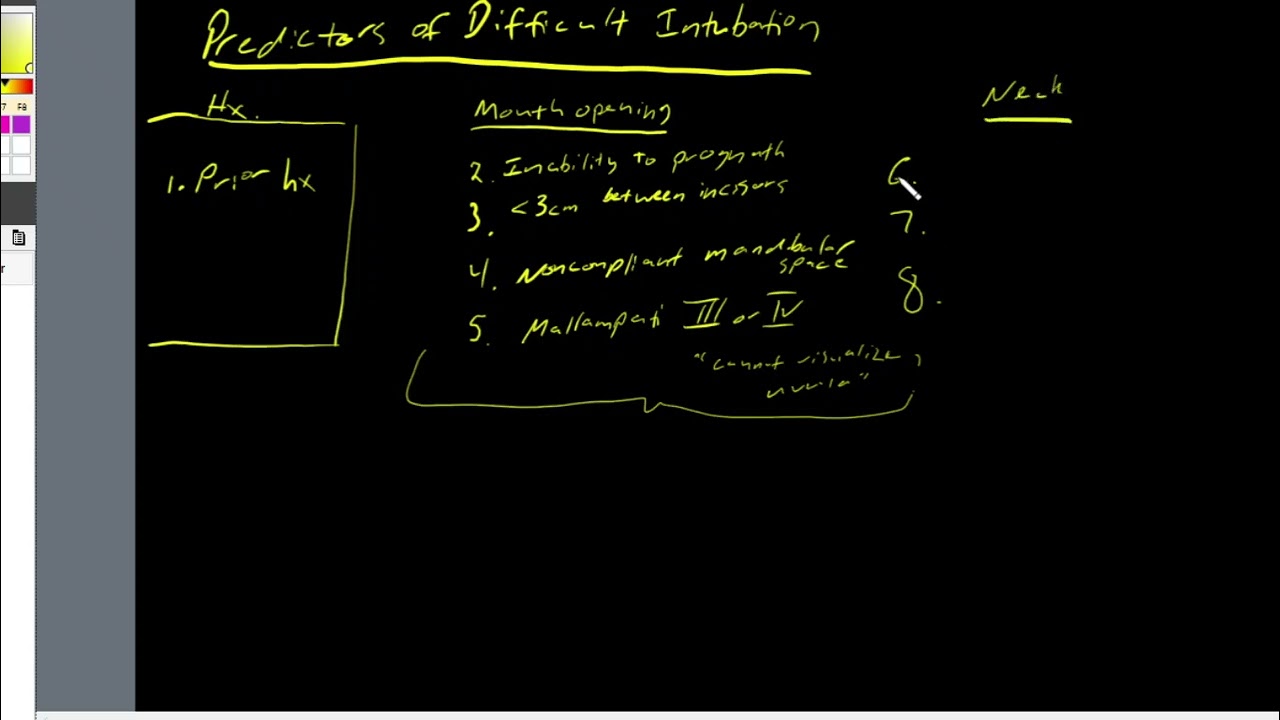 Predictors of Difficult Intubation
Hx.
1. Prior hx
Mouth opening
2. Inability to prognath
3. <3cm between incisors
4. Noncompliant mandibular
space
5. Mallampati III or IV
"cannot visualize
uvula"
Neck
6.
7.
8.
7 F8
r